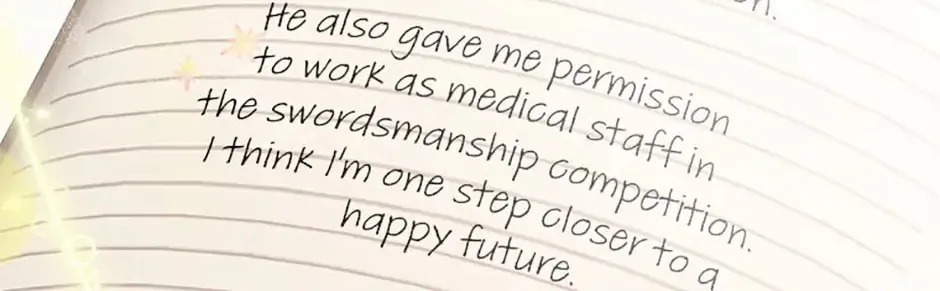 He also gave me permission
to work as medical staff in
the swordsmanship competition.
I think I'm one step closer to a
happy future.